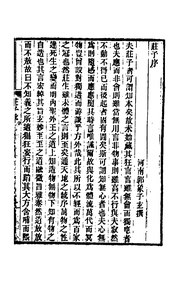 莊子序
河南郭象子玄撰
夫莊子者可謂知本矣故未始藏其狂言言雖無會而獨應者
也夫應而非會則雖當無用言非物事則雖高不行與夫寂然
不動不得已而後起者固有間矣斯可謂知無心者也夫心無
爲則隨感而應應隨其時言唯謹爾故與化爲體流萬代而冥
物豈曾設對獨遘而游談乎方外哉此其所以不經而爲百家
之冠也然莊生雖未體之言則至矣通天地之統序萬物之性
達死生之變而明內聖外王之道上知造物無物下知有物之
自造也其言宏綽其旨玄妙至至之道融微旨雅泰然遣放
而不敖故曰不知義之所適猖狂妄行而蹈其大方含哺而熙